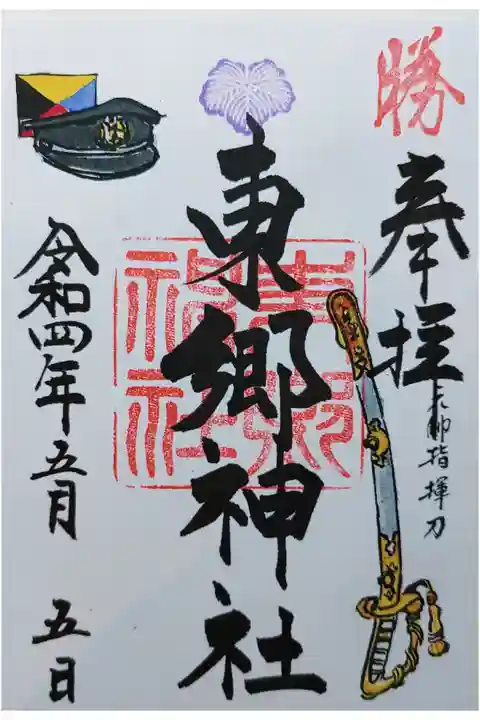 勝
奉拝
元帥指揮刀
東郷神社
東郷神社
令和四年五月五日